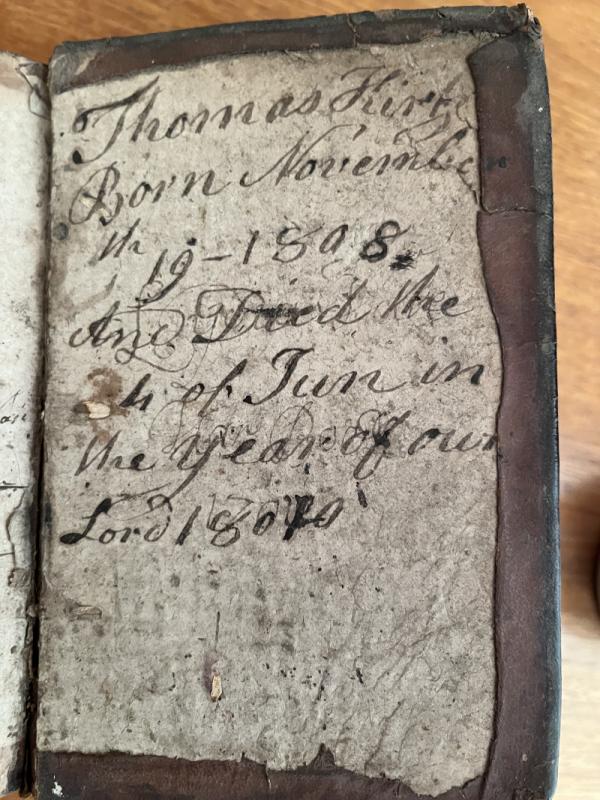 Thomas Kirk
Born November
th 19 - 1808
And Died the
4 of Jun in
the year of our
Lord